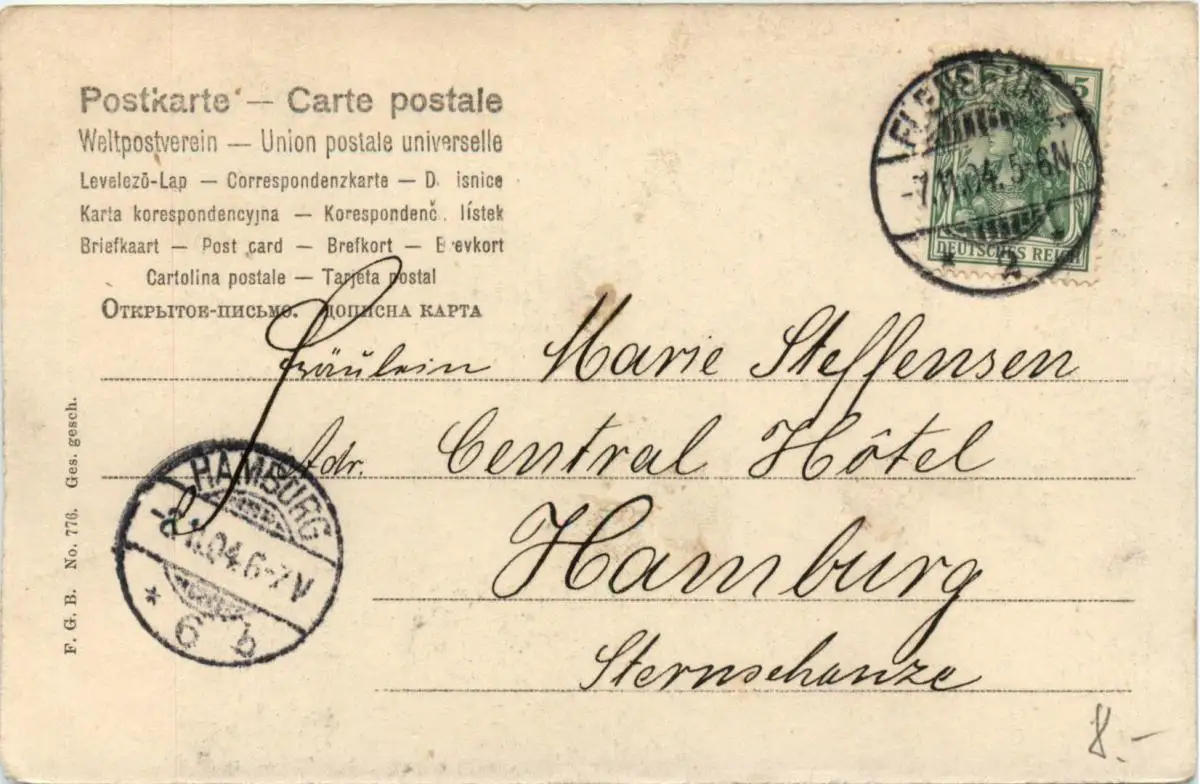 Postkarte — Carte postale
Weltpostverein — Union postale universelle
Levelezõ-Lap — Correspondenzkarte — D isnice
Karta korespondencyjna — Korespondenč lístek
Briefkaart — Post card — Brefkort — B evkort
Cartolina postale — Tarjeta postal
Открытое-письмо. дописна карта
5
FLENSBURG
-1.11.04.5-6N.
* 2
DEUTSCHES REICH
Fräulein Marie Steffensen
Adr. Central Hôtel
Hamburg
Sternschanze
HAMBURG
-2.11.04.6-7V
* 6 b
F. G. B. No. 776. Ges. gesch.
8.-